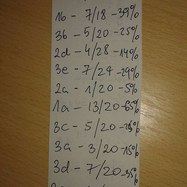 1b - 7/18 - 39%
3b - 5/20 - 25%
2d - 4/28 - 14%
3e - 7/24 - 29%
2a - 1/20 - 5%
1a - 13/20 - 65%
3c - 5/20 - 25%
3a - 3/20 - 15%
3d - 7/20 - 35%